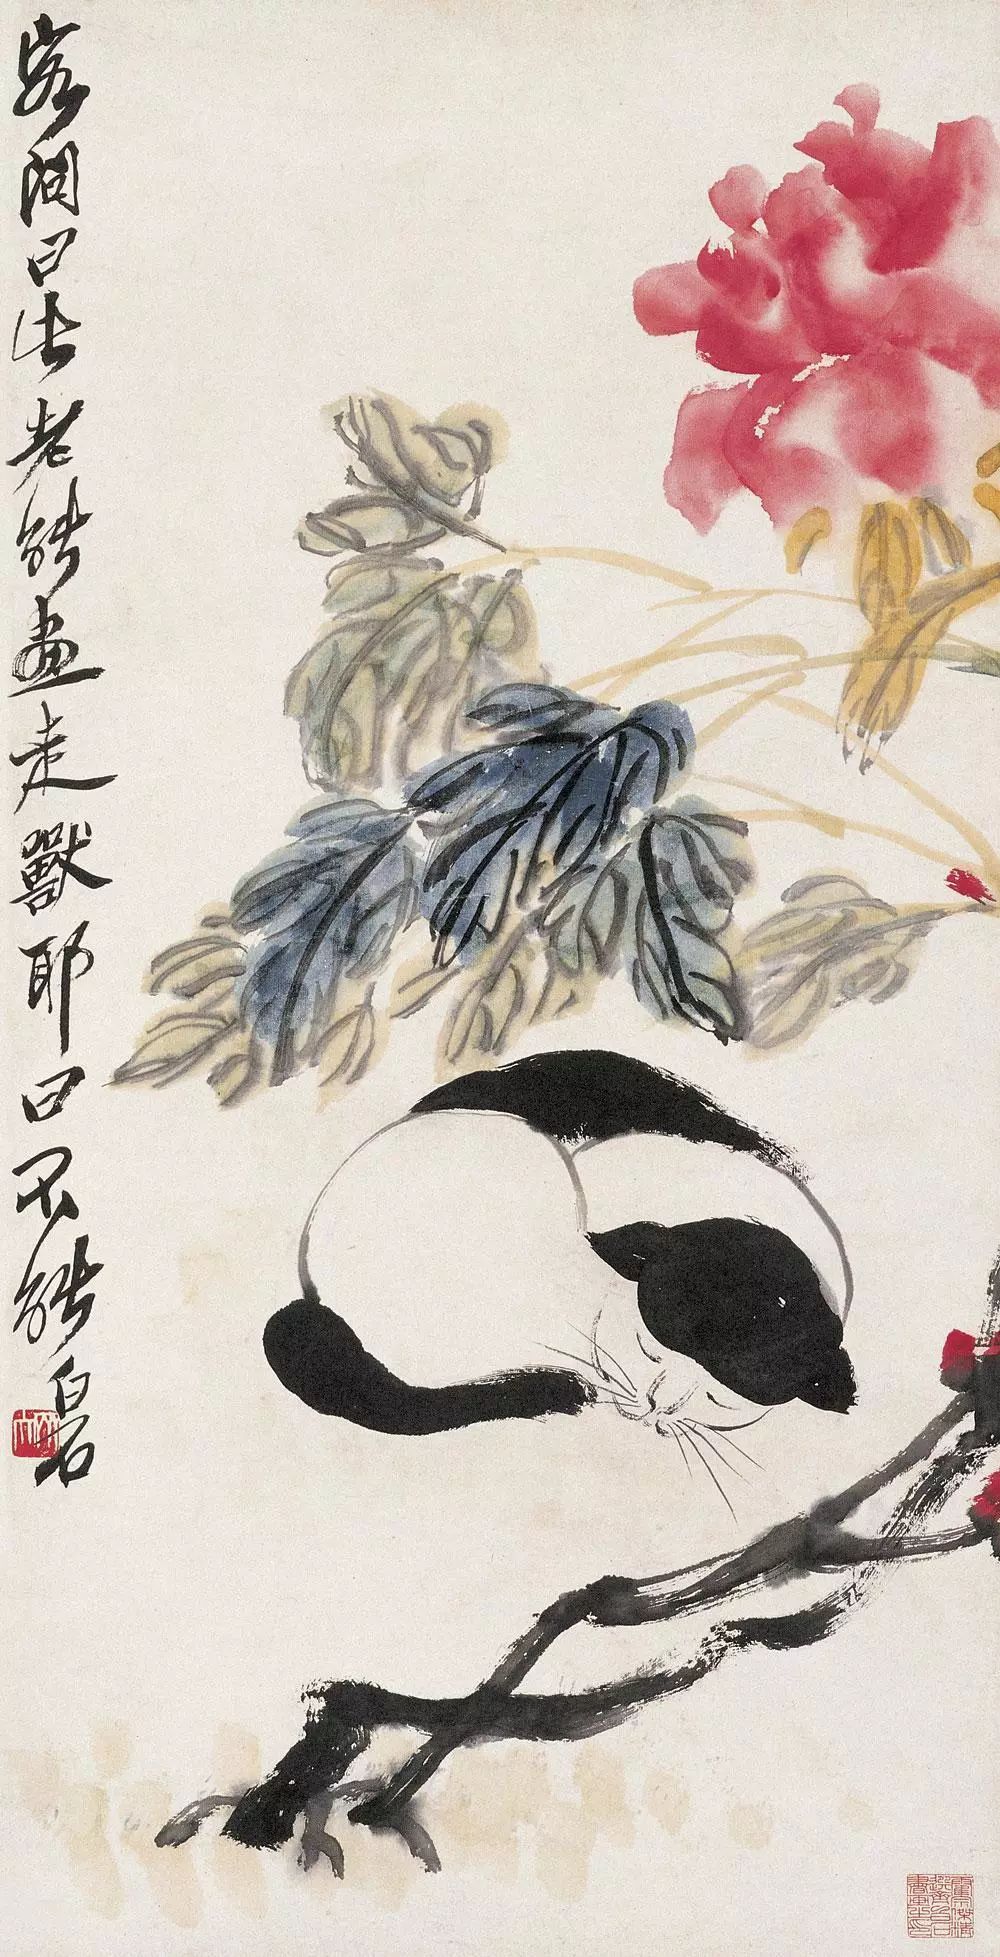 客問曰此老能畫走獸耶曰不能白石